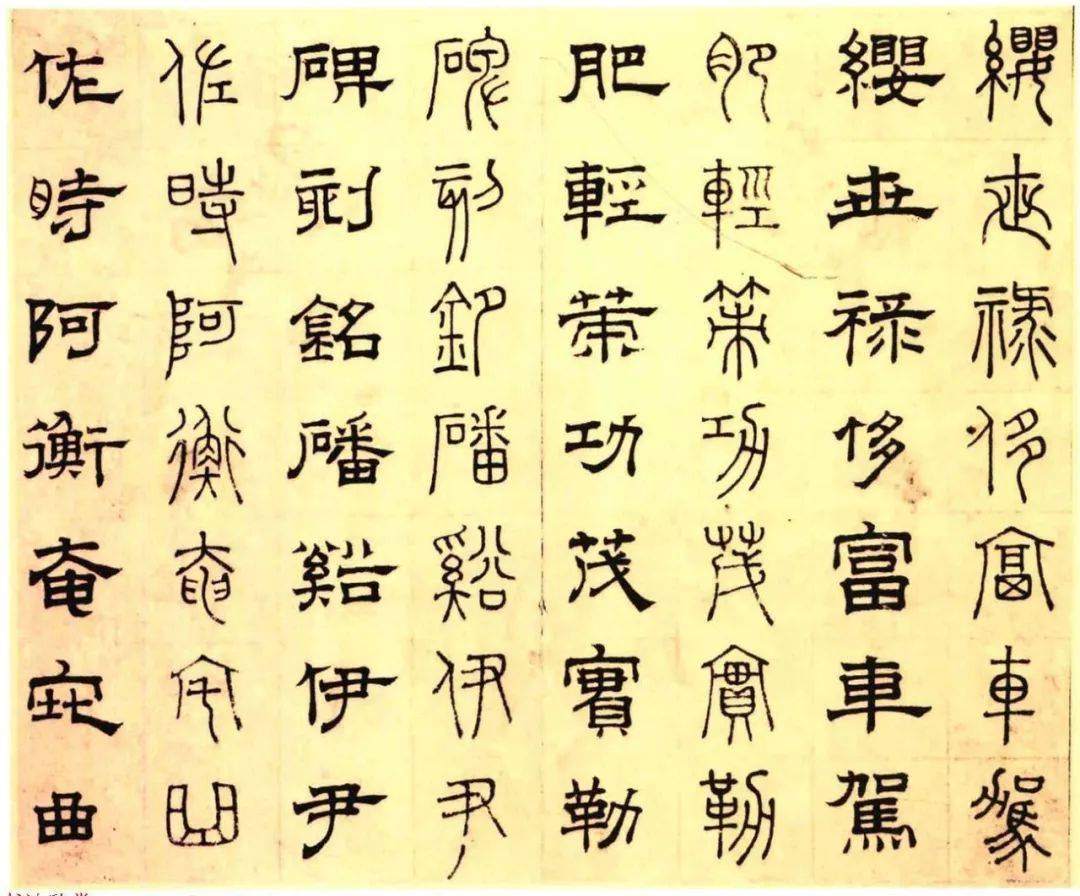 纓世祿侈富車駕
纓世祿侈富車駕
肥輕策功茂實勒
肥輕策功茂實勒
碑刻銘磻谿伊尹
碑刻銘磻谿伊尹
佐時阿衡奄宅曲
佐時阿衡奄宅曲